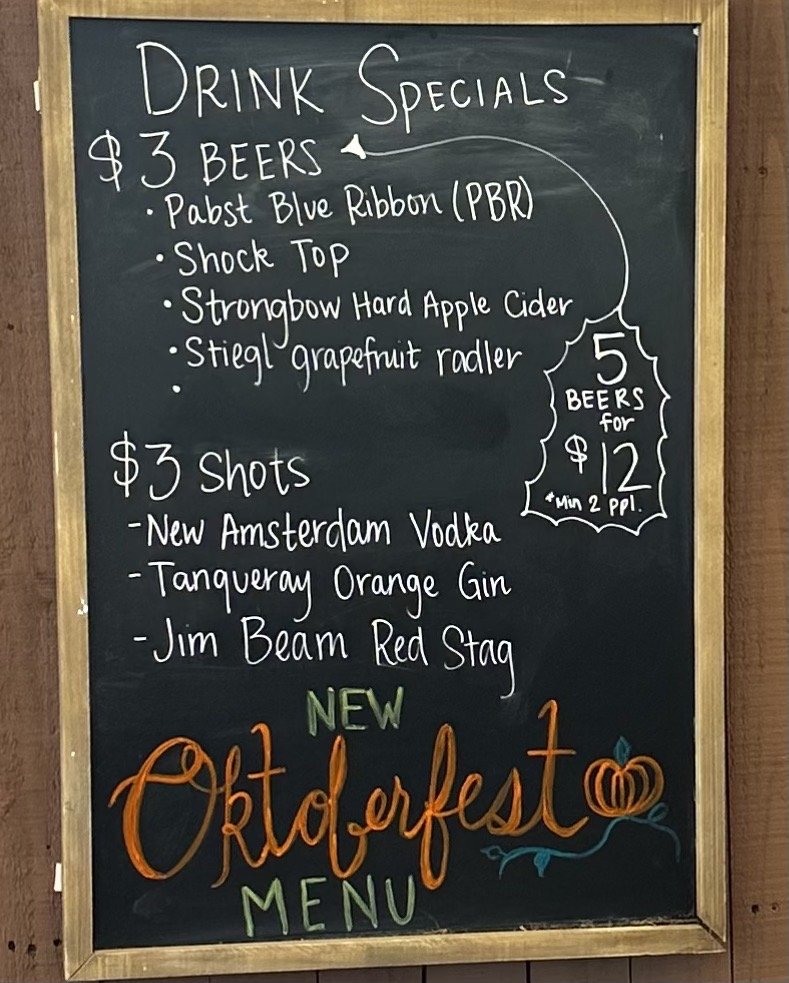 DRINK SPECIALS
$3 BEERS
• Pabst Blue Ribbon (PBR)
• Shock Top
• Strongbow Hard Apple Cider
• Stiegl grapefruit radler
•
5
BEERS
for
$12
*Min 2 ppl.
$3 Shots
- New Amsterdam Vodka
- Tanqueray Orange Gin
- Jim Beam Red Stag
NEW
Oktoberfest
MENU